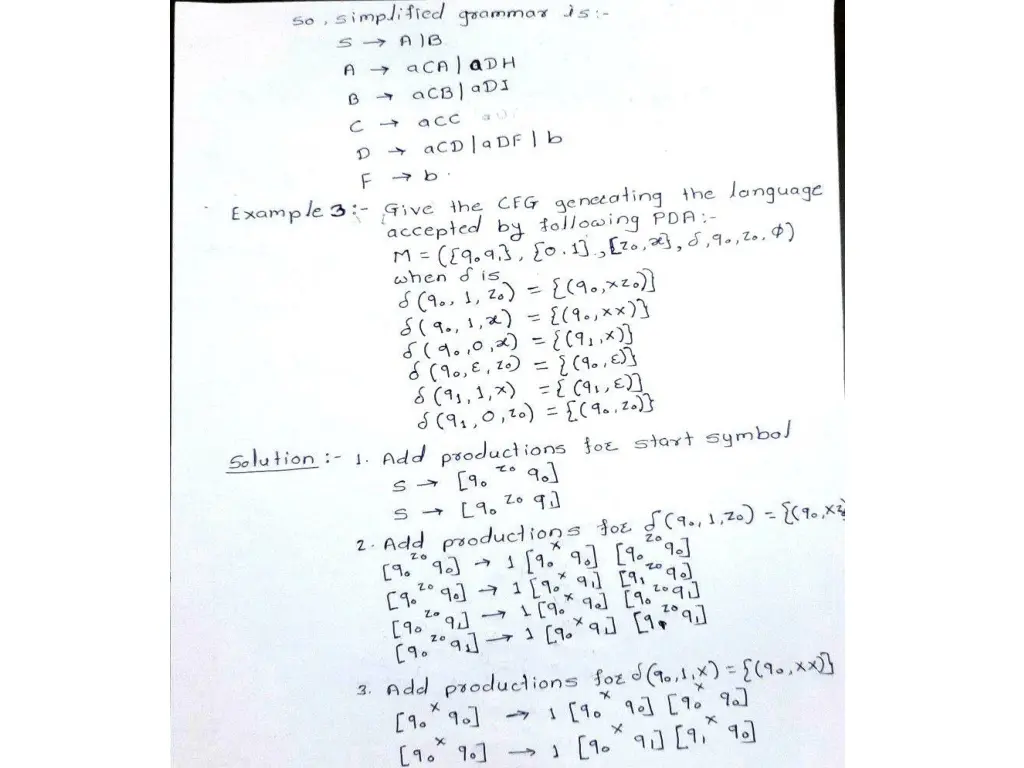 so, simplified grammar is:-
S → A|B
A → aCA | aDH
B → aCB | aDI
C → aCC
D → aCD | aDF | b
F → b.
Example 3:- Give the CFG generating the language
accepted by following PDA:-
M = ({q₀q₁}, {0.1}, [z₀,x}, δ, q₀, z₀, ϕ)
when δ is
δ(q₀, 1, z₀) = {(q₀, xz₀)}
δ(q₀, 1, x) = {(q₀, xx)}
δ(q₀, 0, x) = {(q₁, x)}
δ(q₀, ε, z₀) = {(q₀, ε)}
δ(q₁, 1, x) = {(q₁, ε)}
δ(q₁, 0, z₀) = {(q₀, z₀)}
Solution:- 1. Add productions for start symbol
S → [q₀ z₀ q₀]
S → [q₀ z₀ q₁]
2. Add productions for δ(q₀, 1, z₀) = {(q₀, xz
[q₀ z₀ q₀] → 1 [q₀ x q₀] [q₀ z₀ q₀]
[q₀ z₀ q₀] → 1 [q₀ x q₁] [q₁ z₀ q₀]
[q₀ z₀ q₁] → 1 [q₀ x q₀] [q₀ z₀ q₁]
[q₀ z₀ q₁] → 1 [q₀ x q₁] [q₁ z₀ q₁]
3. Add productions for δ(q₀, 1, x) = {(q₀, xx)}
[q₀ x q₀] → 1 [q₀ x q₀] [q₀ x q₀]
[q₀ x q₀] → 1 [q₀ x q₁] [q₁ x q₀]